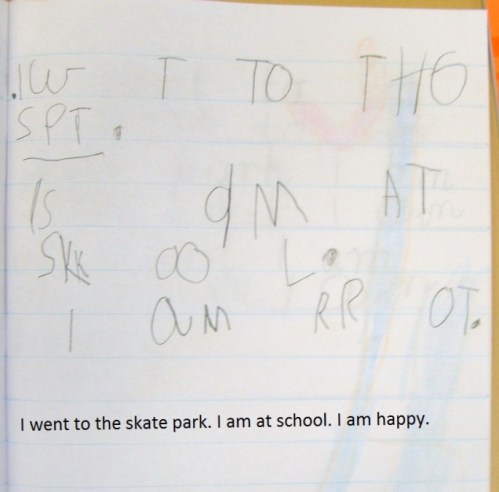 .IW T TO THO
SPT.
IS am AT
SKK OO L.
I am RR OT.
I went to the skate park. I am at school. I am happy.